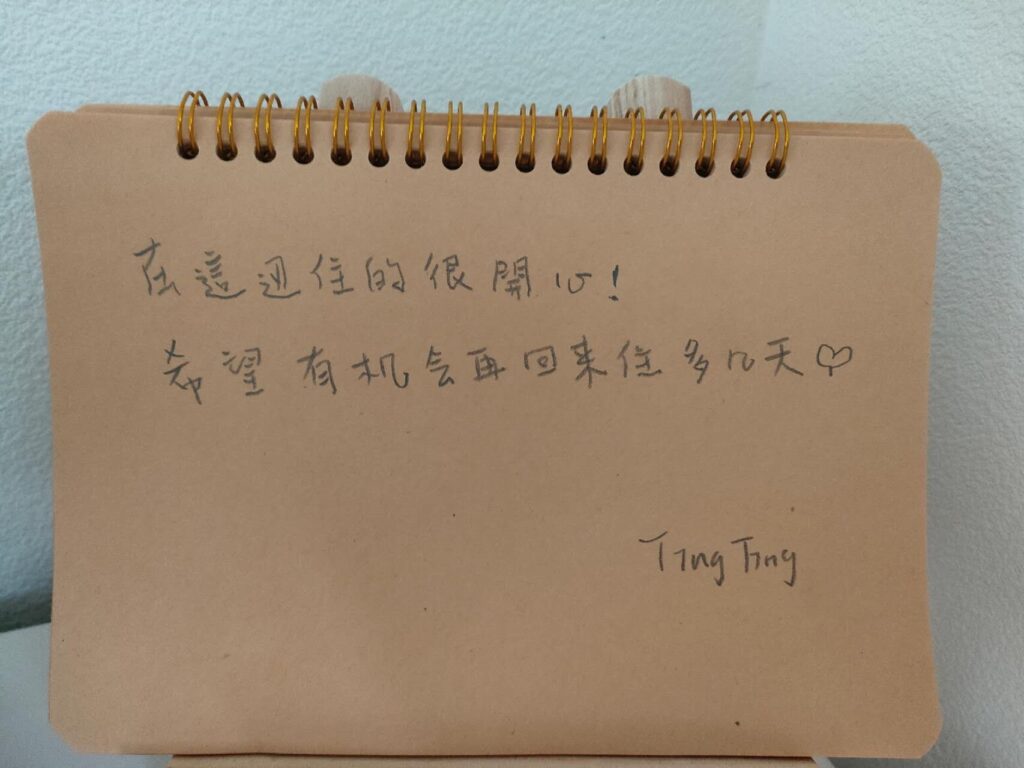 在這边住的很開心!
希望有机会再回来住多几天♡
Ting Ting